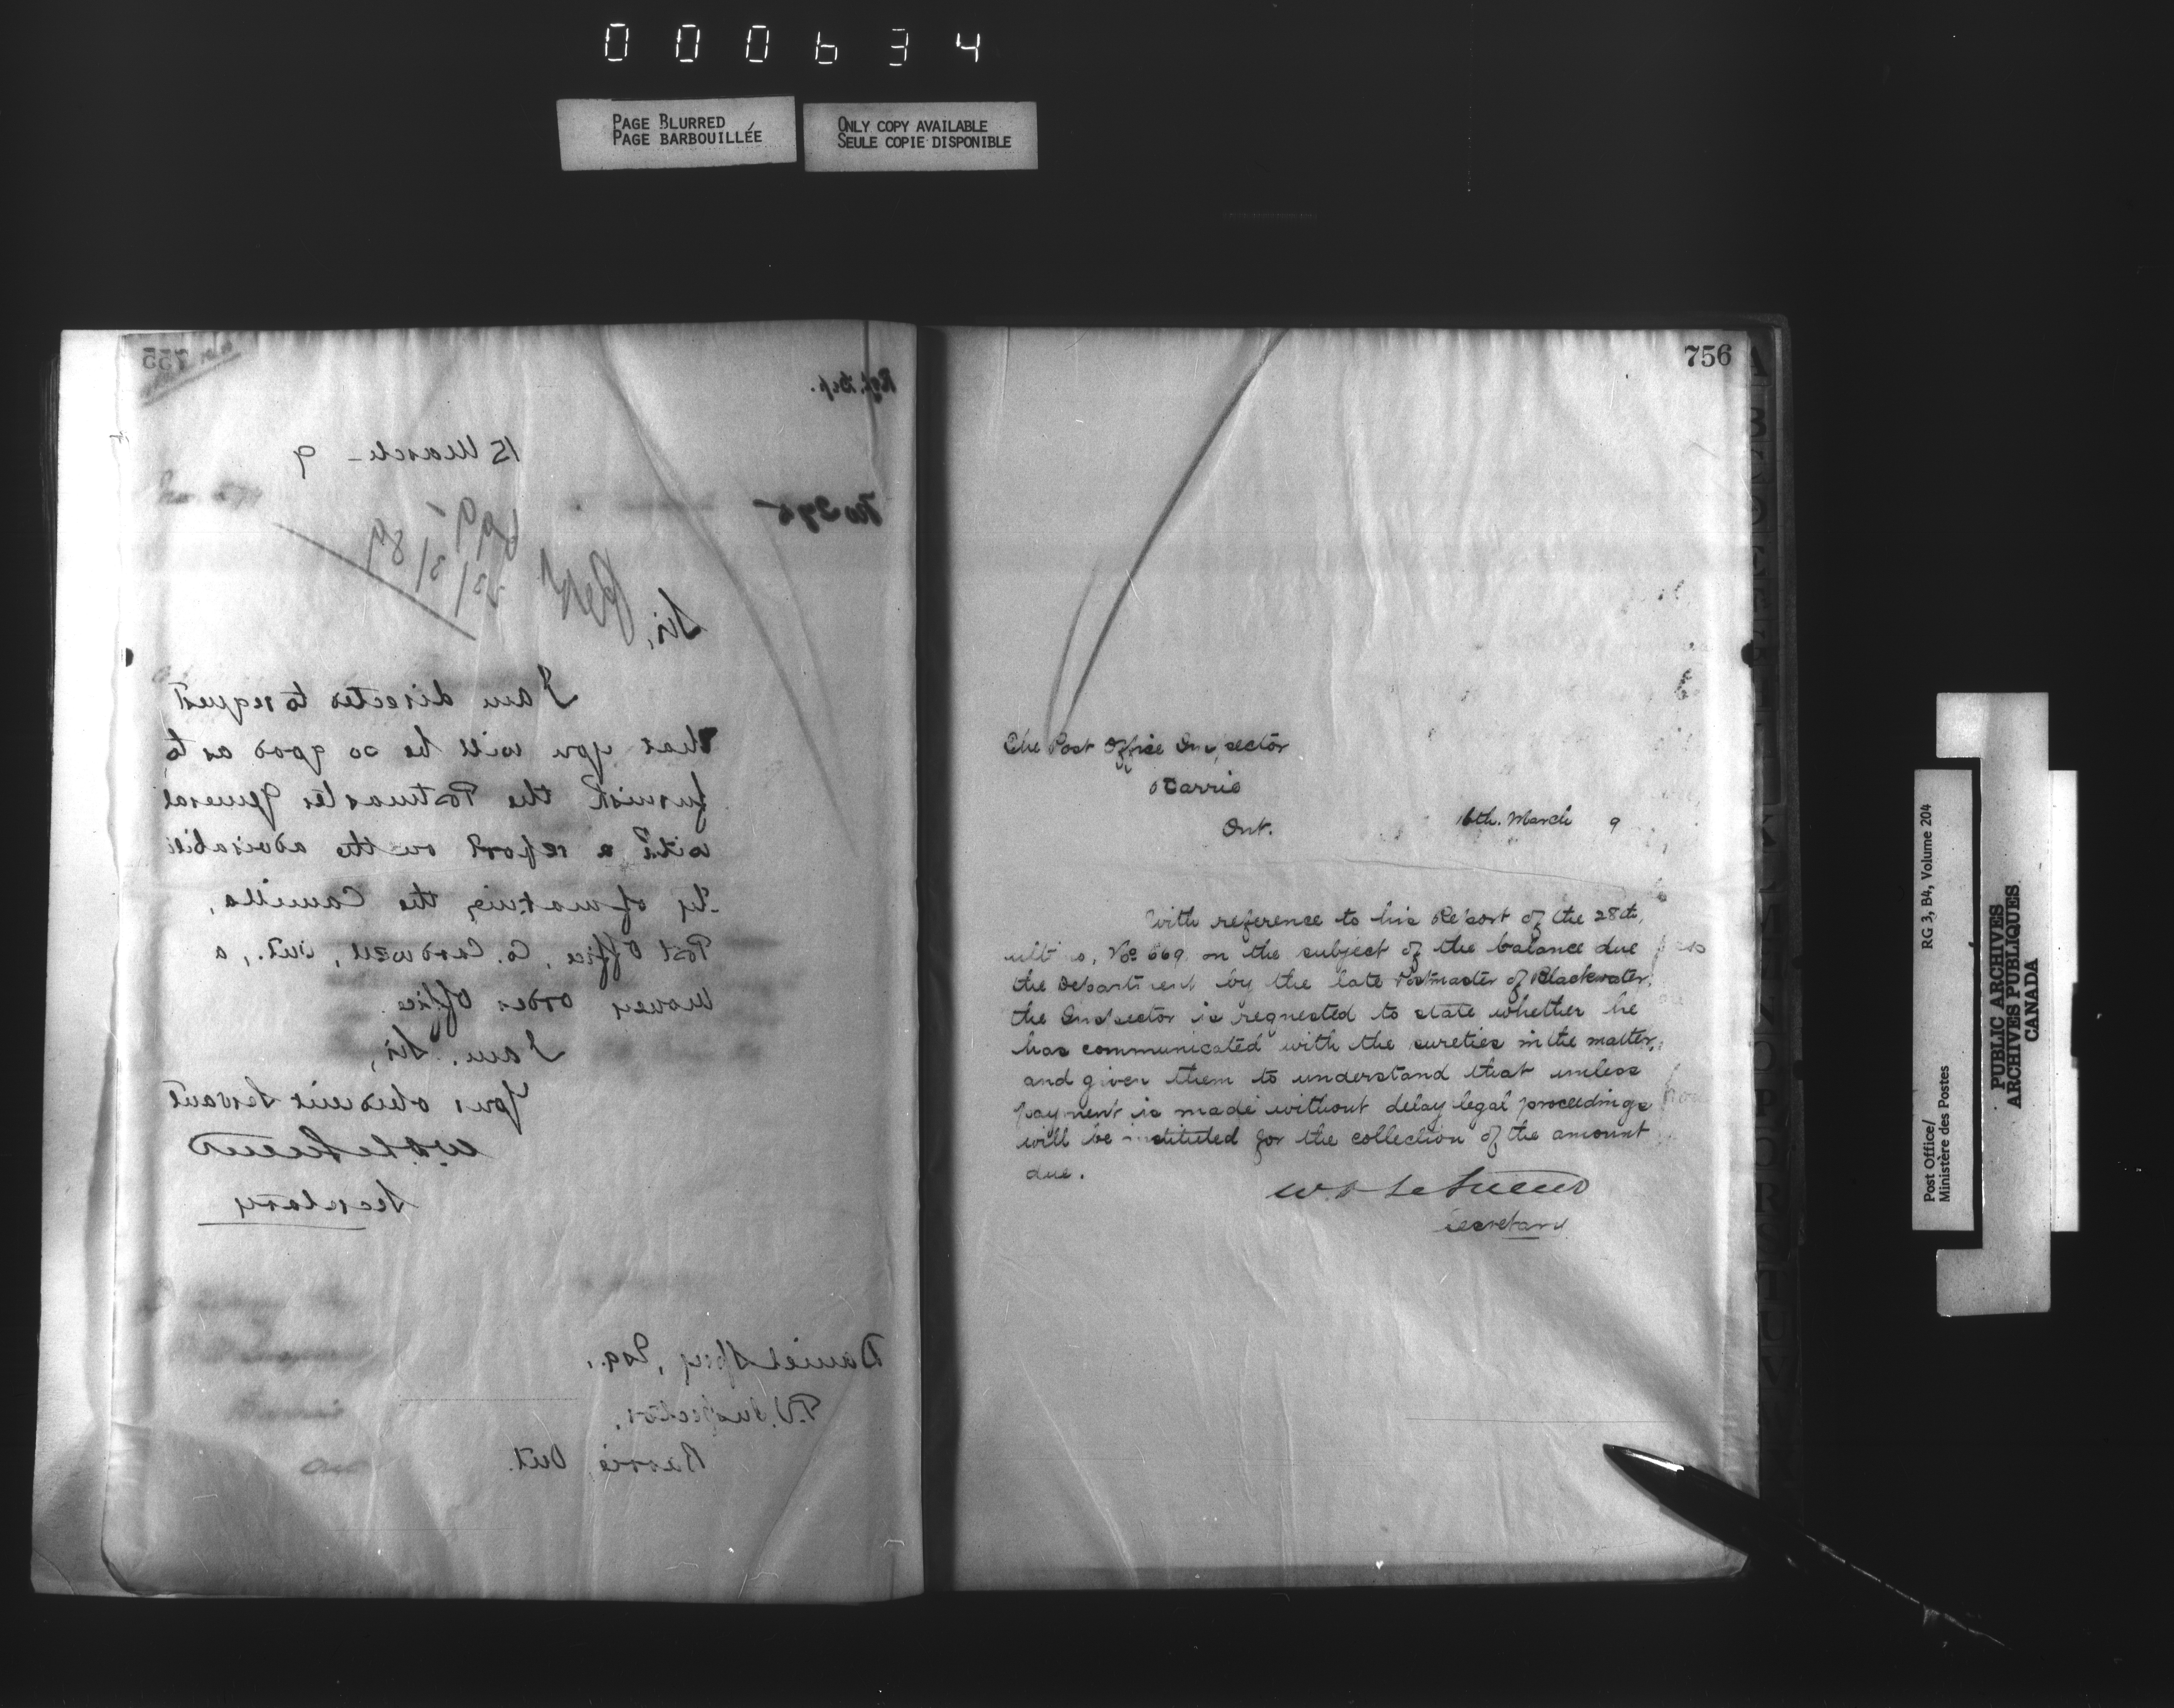 000634
PAGE BLURRED
PAGE BARBOUILLÉE
ONLY COPY AVAILABLE
SEULE COPIE DISPONIBLE
755
15 March - 9
No 395
Sir,
Rept
699
23/3/89
I am directed to request
that you will be so good as to
furnish the Postmaster General
with a report on the advisabili
-ty of making the Camilla,
Post Office, Co. Cardwell, Ont., a
Money Order Office.
I am, Sir,
Your obedient Servant
Secretary
Daniel Spry, Esq.,
P.O. Inspector,
Barrie, Ont.
756
The Post Office Inspector
Barrie
Ont.
16th. March 9
With reference to his Report of the 28th,
ultimo, No. 569, on the subject of the balance due
the Department by the late Postmaster of Blackwater,
the Inspector is requested to state whether he
has communicated with the sureties in the matter,
and given them to understand that unless
payment is made without delay legal proceedings
will be instituted for the collection of the amount
due.
Secretary
Post Office/
Ministère des Postes
RG 3, B4, Volume 204
PUBLIC ARCHIVES
ARCHIVES PUBLIQUES
CANADA